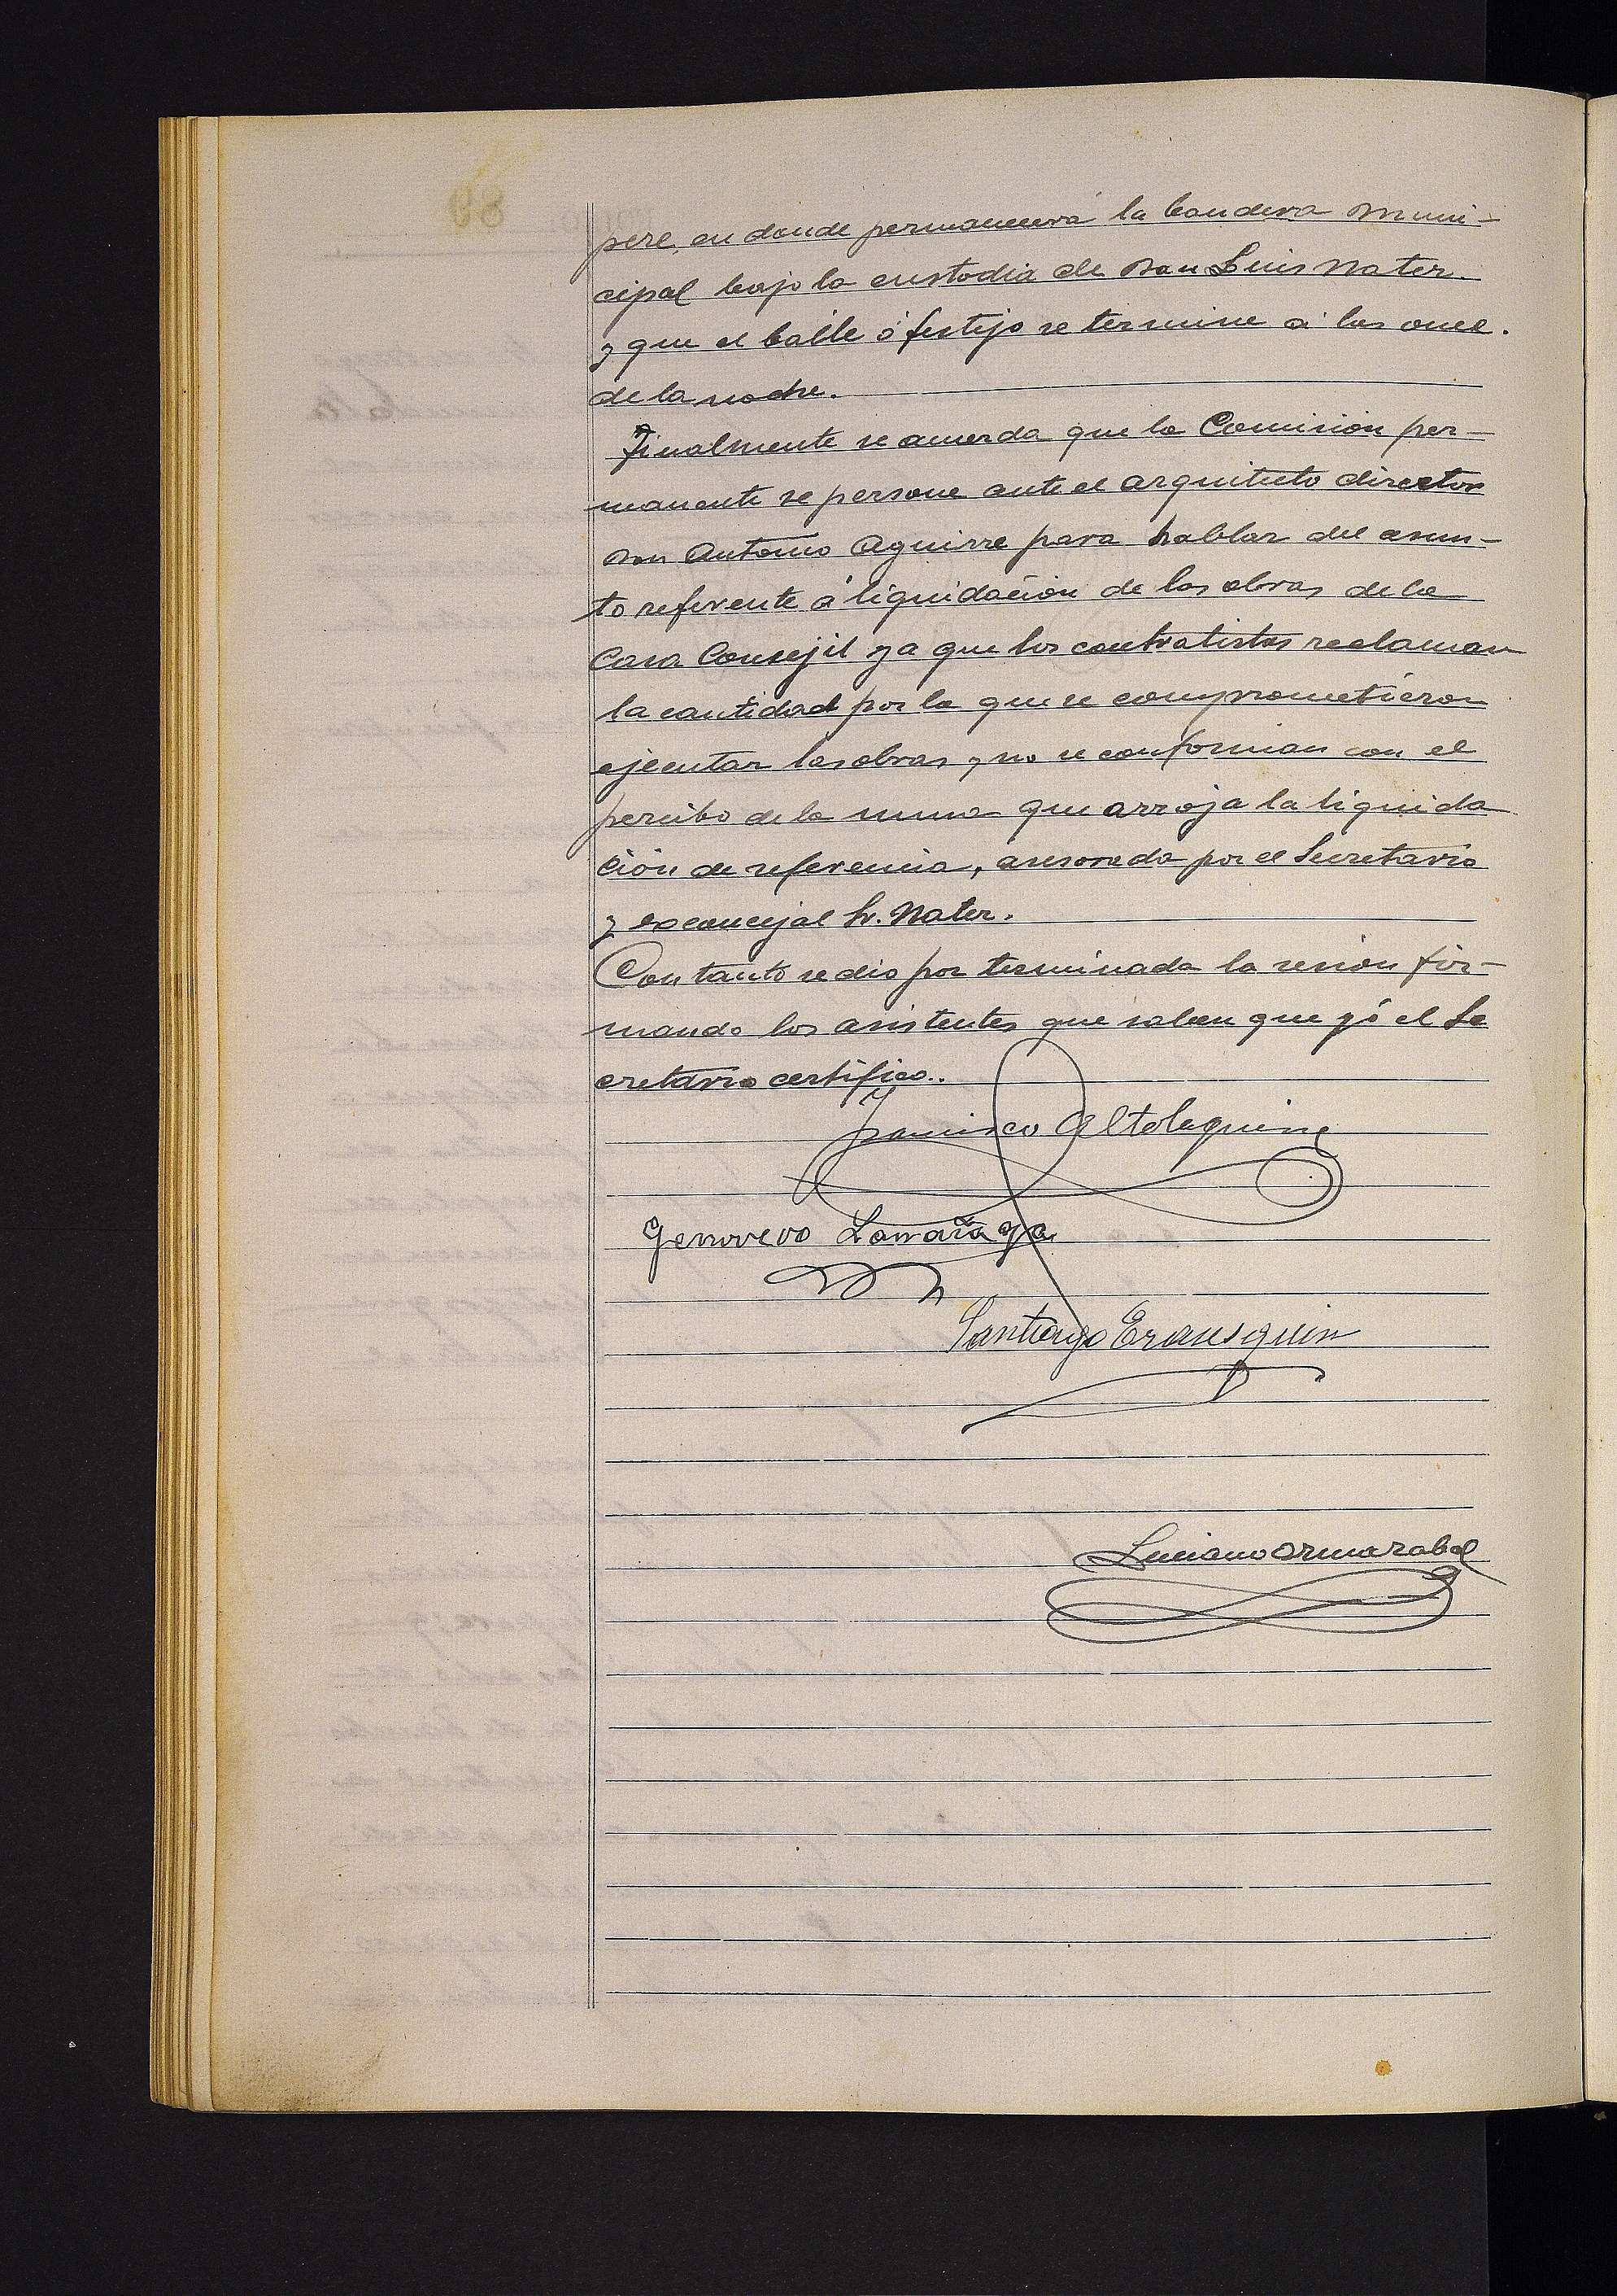 pere, en donde permanecerá la bandera muni-
cipal bajo la custodia de Don Luis Nater
y que el baile ó festejo se termine á las once.
de la noche.
Finalmente se acuerda que la Comisión per-
manente se persone ante el arquitecto director
Don Antonio Aguirre para hablar del asun-
to referente á liquidación de las obras de la
Casa Consejil ya que los contratistas reclaman
la cantidad por la que se comprometieron
ejecutar las obras y no se conforman con el
percibo de la suma que arroja la liquida
ción de referencia, asesorada por el Secretario
y exconcejal Sr. Nater.
Con tanto se dio por terminada la sesion fir-
mando los asistentes que saben que yó el Se
cretario certifico..
Francisco Altolaguirre
Genovevo Larrañaga
Santiago Erausquin
Luciano Ormazabal